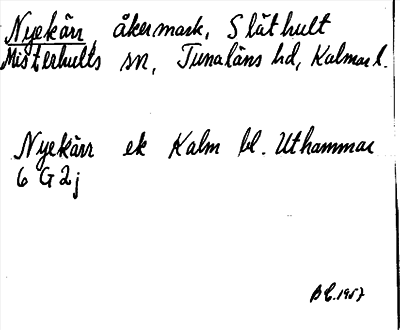 Nyekärr, åkermark, Släthult
Misterhults sn, Tunaläns hd, Kalmar l.
Nyekärr ek Kalm bl. Uthammar
6 G 2j
1957